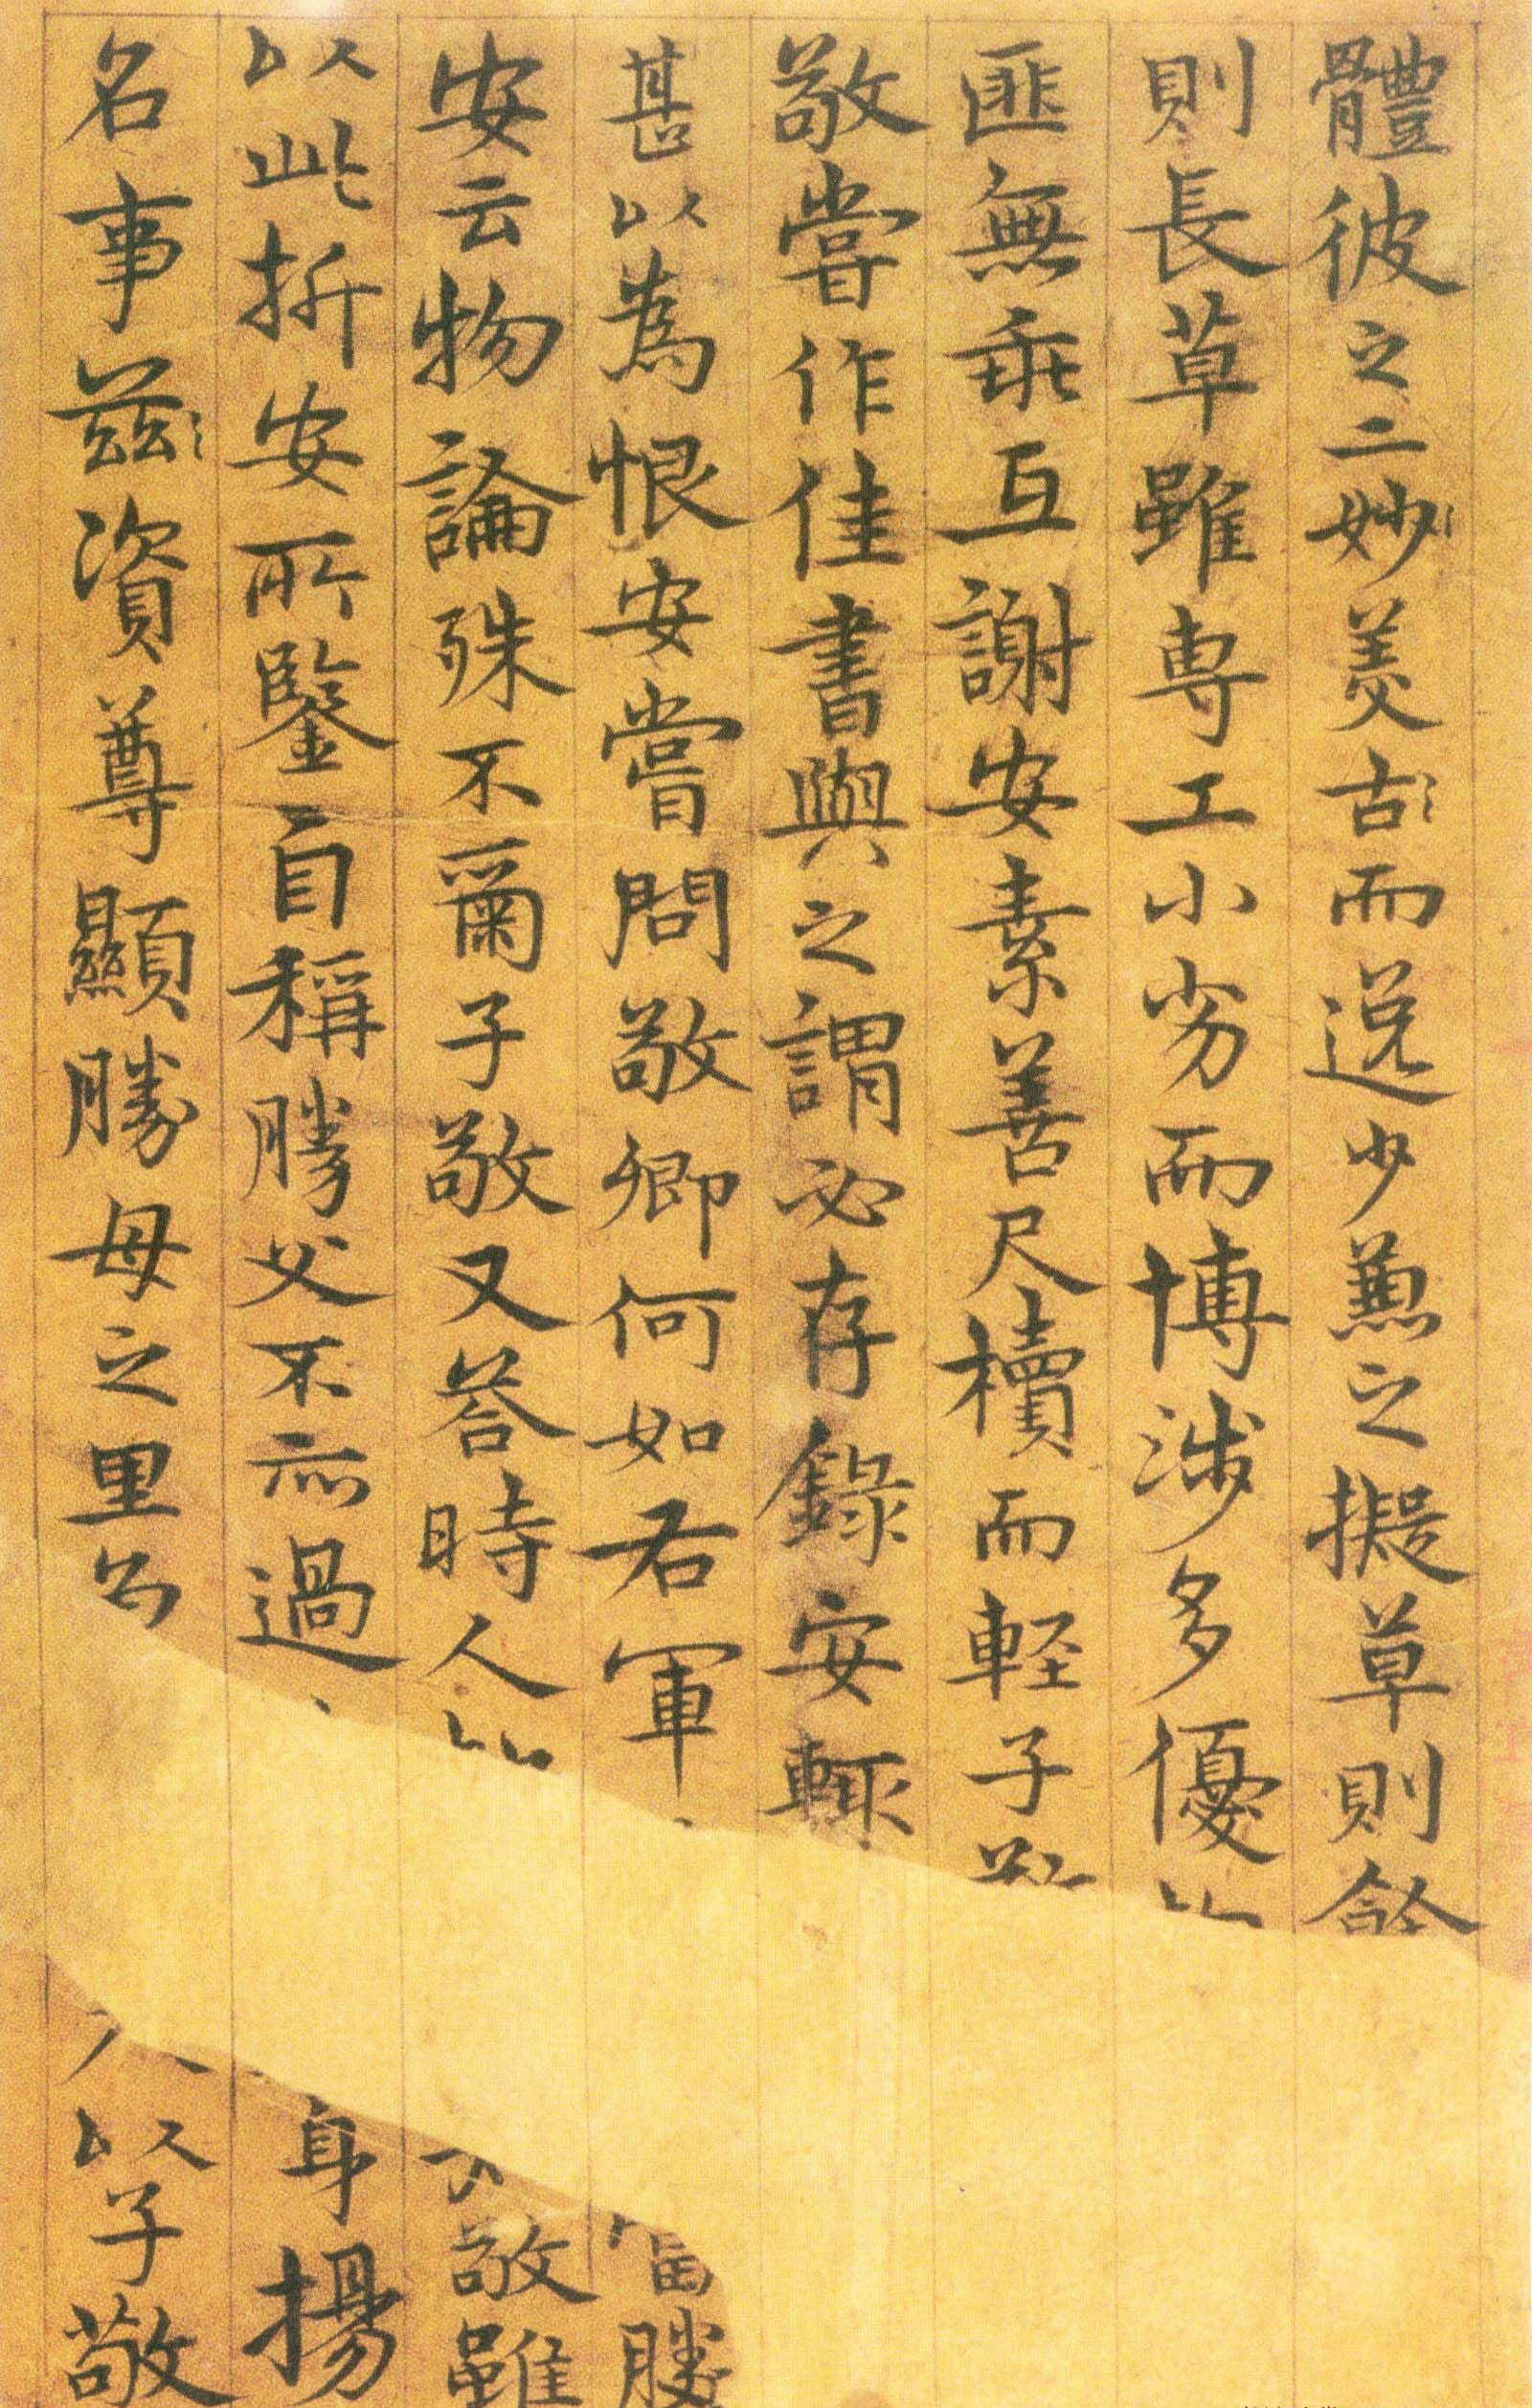 體彼之二妙美古而逸少兼之擬草則
則長草雖専工小劣而博涉多優
匪無乖互謝安素善尺牘而軽子
敬嘗作佳書與之謂必存錄安輒
甚以為恨安嘗問敬卿何如右軍當勝
安云物論殊不爾子敬又答時人敬雖
以此折安所鑒自稱勝父不亦過身揚
名事茲資尊顯勝母之里以子敬